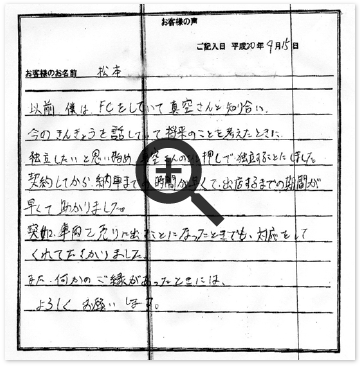 お客様の声
ご記入日 平成20年 9月15日
お客様のお名前 松本
以前、僕は、FCをしていて真空さんと知り合い、
今のきんきょうを話していて将来のことを考えたときに、
独立したいと思い始め 真空さんの 押しで独立することにしました。
契約してから、納車まで 時間が早くて、出店するまでの期間が
早くて 助かりました。
契約、車両を売りに出すことになったときでも、対応をして
くれてたすかりました。
また、何かのご縁があったときには、
よろしくお願いします。